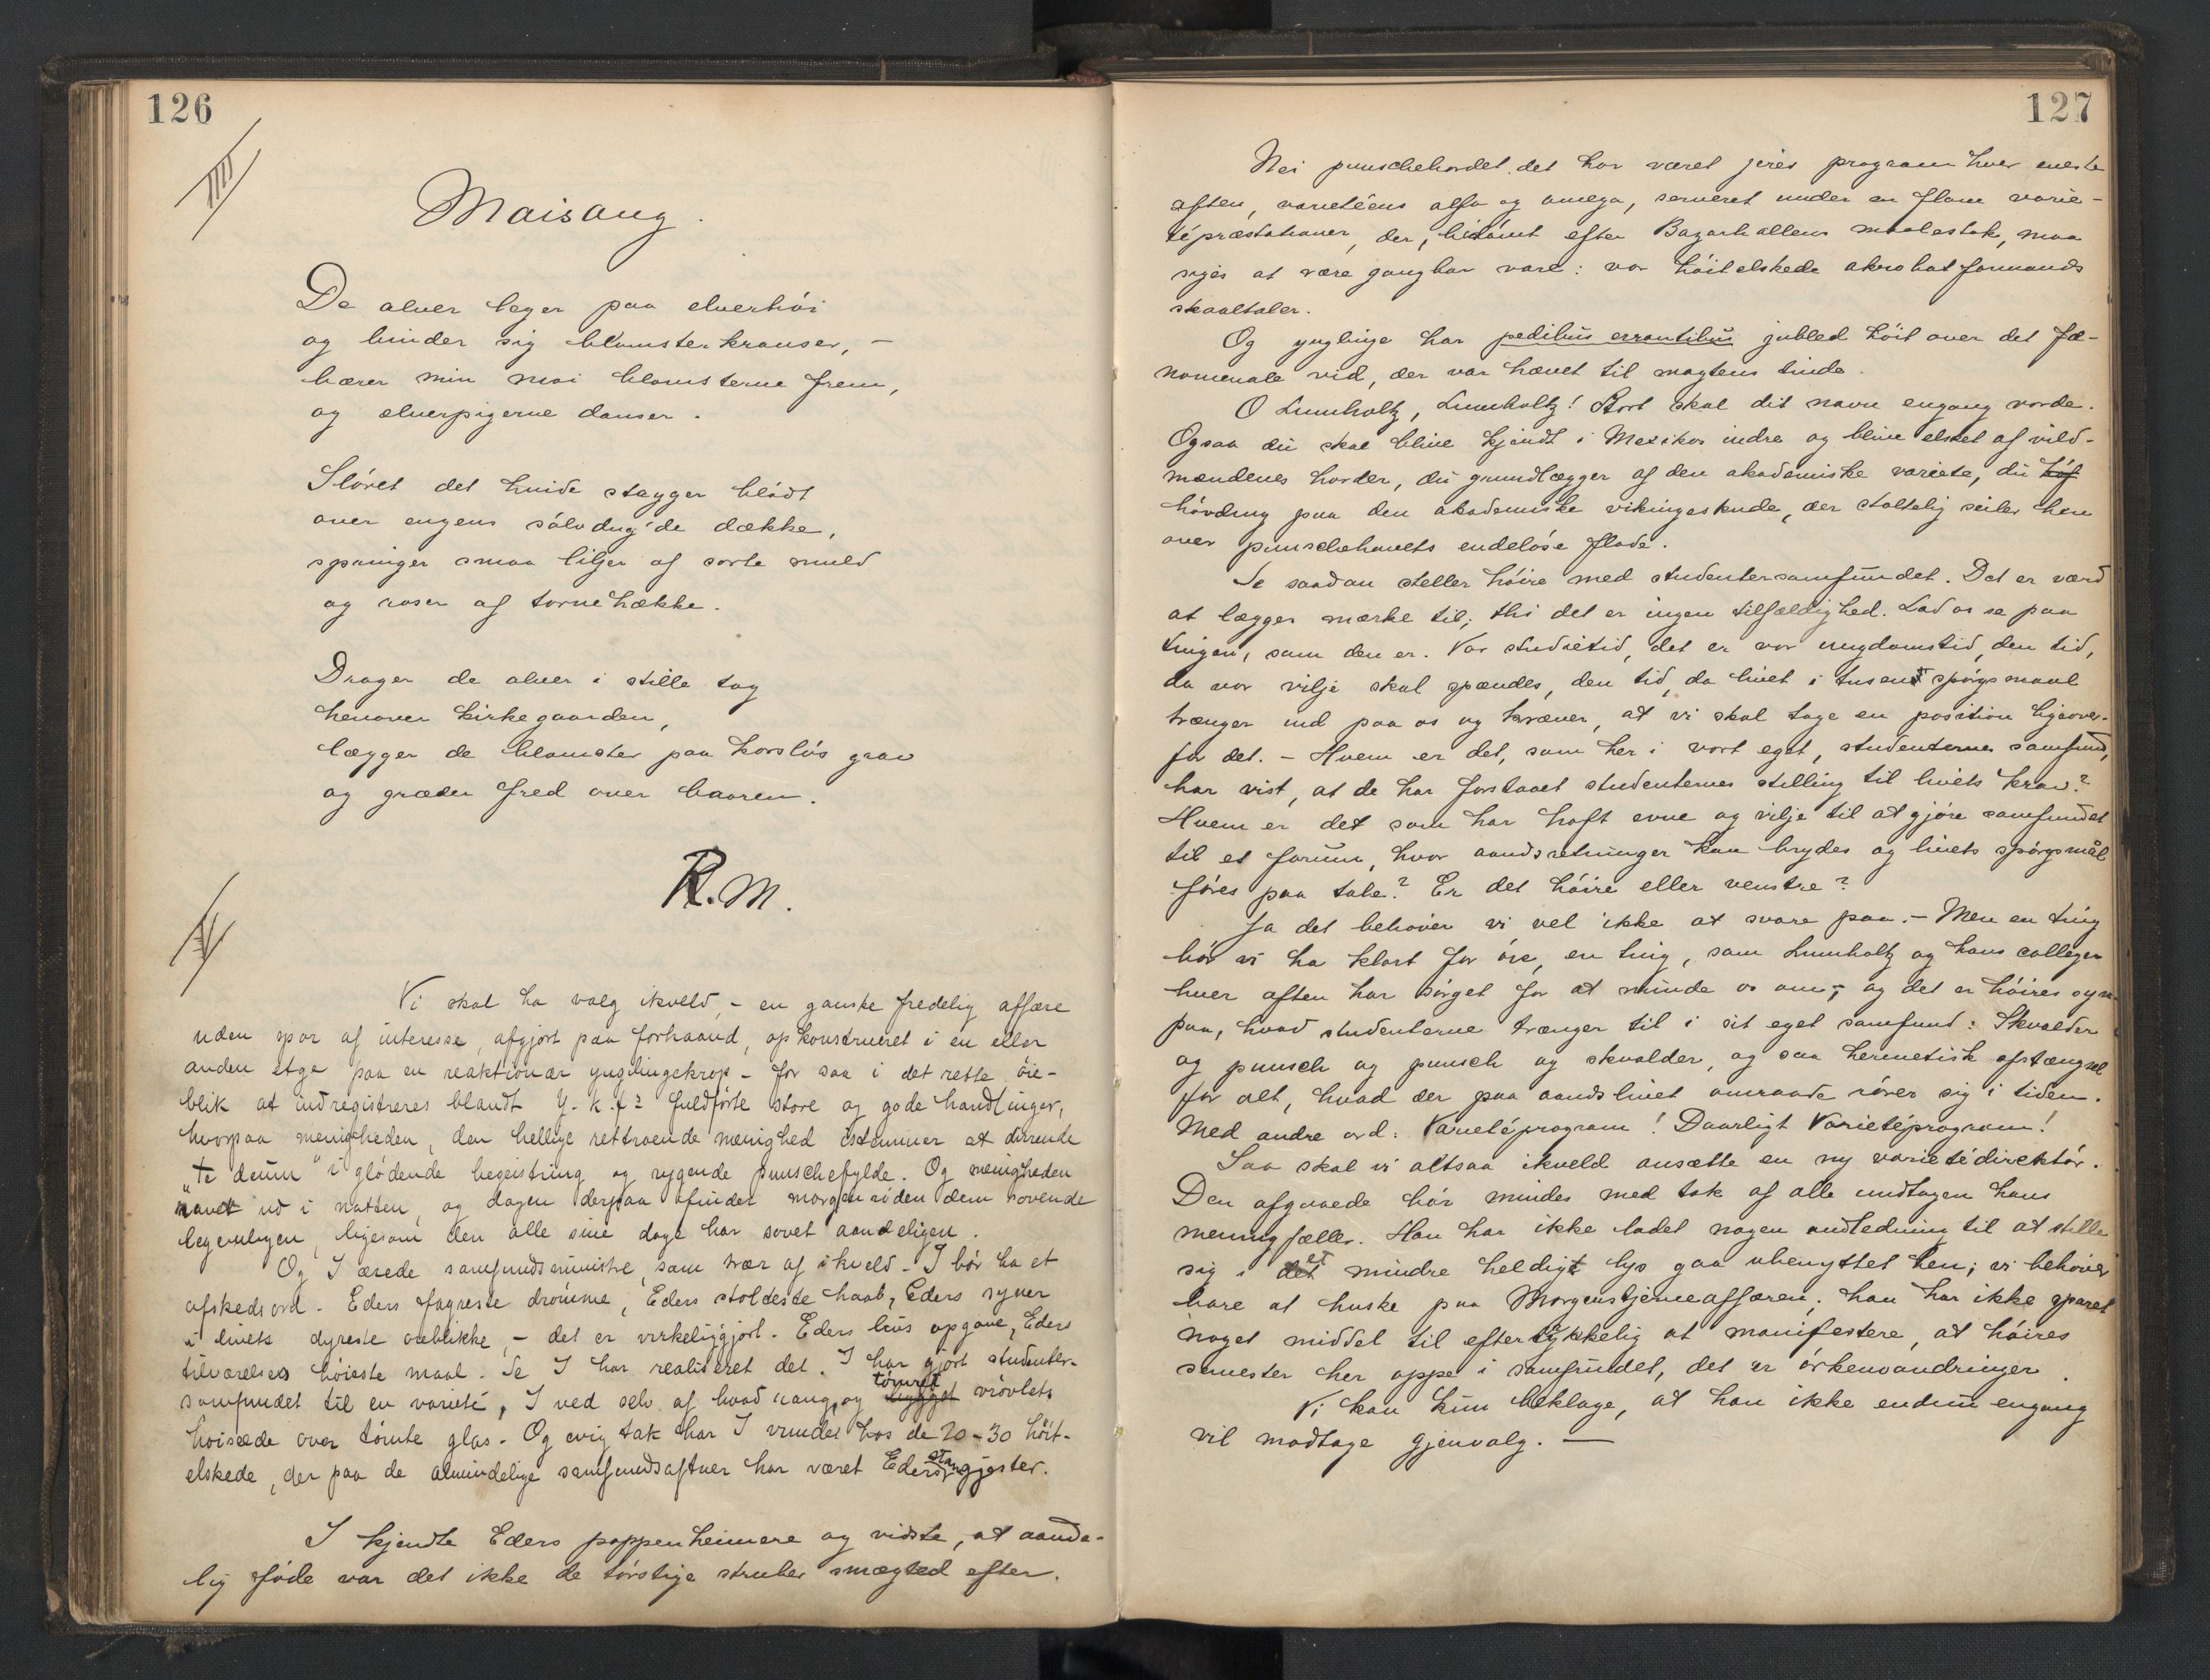 126
III
Maisang.
De alver leger paa elverhöi
og binder sig blomsterkranser, –
bærer min mai blomsterne frem,
og elverpigerne danser.
Slöret det hvide stryger blödt
over engens sölvdug'de dække,
springer smaa liljer af sorte muld
og roser af tornehække.
Drager de alver i stille tog
henover kirkegaarden,
lægger de blomster paa korslös grav
og græder fred over baaren.
R. M.
IV
Vi skal ha valg ikveld, – en ganske fredelig affære
uden spor af interesse, afgjort paa forhaand, opkonstrueret i en eller
anden etge paa en reaktionær ynglingekrop – for saa i det rette öie-
blik at indregistreres blandt Y. K. f? fuldförte store og gode handlinger,
hvorpaa menigheden, den hellige rettroende menighed istemmer et dirrende
"te deum" i glödende begeistring og rygende punschefylde. Og menigheden
ud i natten, og dagen derpaa finder morgenröden dem sovende
legemligen, ligesom den alle sine dage har sovet aandeligen.
Og I ærede samfundsministre, som træ af ikveld – I bör ha et
afskedsord. Eders fagreste drömme, Eders stolteste haab, Eders syner
i livets dyreste öieblikke, – det er virkeliggjort. Eders livs opgave, Eders
tilværelses höieste maal. Se I har realiseret det. I har gjort studenter-
samfundet til en varieté, I ved selv af hvad rang, og bygget tömret vrövlets
höisæde over tömte glas. Og evig tak har I vundet hos de 20–30 höit-
elskede, der paa de almindelige samfundsaftner har været Eders stamgjester.
I kjendte Eders pappenheimere og vidste, at aande-
lig föde var det ikke de törstige struber smægted efter.
127
Nei punschebordet, det har været jeres program hver eneste
aften, varietéens alfa og omega, serveret under en flom varie-
tépræstationer, der, bedömt efter Bazarhallens maalestok, maa
siges at være gangbar vare: vor höitelskede akrobatformands
skaaltaler.
Og ynglinge har pedibus errantibus jubled höit over det fæ-
nomenale vid, der var hævet til magtens tinde.
O Lumholtz, Lumholtz! Stort skal dit navn engang vorde.
Ogsaa du skal blive kjendt i Mexikos indre og blive elsket af vild-
mændenes horder, du grundlægger af den akademiske variete, du höf
hövding paa den akademiske vikingeskude, der stoltelig seiler hen
over punschehavets endelöse flade.
Se saadan steller höire med studentersamfundet. Det er værd
at lægges mærke til; thi det er ingen tilfældighed. Lad os se paa
tingen, som den er. Vor studietid, det er vor ungdomstid, den tid,
da vor vilje skal spændes, den tid, da livet i tusend spörgsmaal
trænger ind paa os og kræver, at vi skal tage en position ligeover-
for det. – Hvem er det, som her i vort eget, studenternes samfund,
har vist, at de har forstaaet studenternes stilling til livets krav?
Hvem er det som har haft evne og vilje til at gjöre samfundet
til et forum, hvor aandsretninger kan brydes og livets spörgsmål
föres paa tale? Er det höire eller venstre?
Ja det behöver vi vel ikke at svare paa. – Men en ting
bör vi ha klart for öie, en ting, som Lumholtz og hans colleger
hver aften har sörget for at minde os om; og det er höires syn
paa, hvad studenterne trænger til i sit eget samfund: Skvalder
og punsch og punsch og skvalder, og saa hermetisk afstængsel
for alt, hvad der paa aandslivets omraade rörer sig i tiden.
Med andre ord: Varietéprogram! Daarligt Varietéprogram!
Saa skal vi altsaa ikveld ansætte en ny varietédirektör.
Den afgaaede bör mindes med tak af alle undtagen hans
meningsfæller. Han har ikke ladet nogen anledning til at stille
sig i det et mindre heldigt lys gaa ubenyttet hen; vi behöver
bare at huske paa Morgenstjerneaffæren; han har ikke sparet
noget middel til eftertykkelig at manifestere, at höires
semester her oppe i samfundet, det er örkenvandringer.
Vi kan kun beklage, at han ikke endnu engang
vil modtage gjenvalg. —